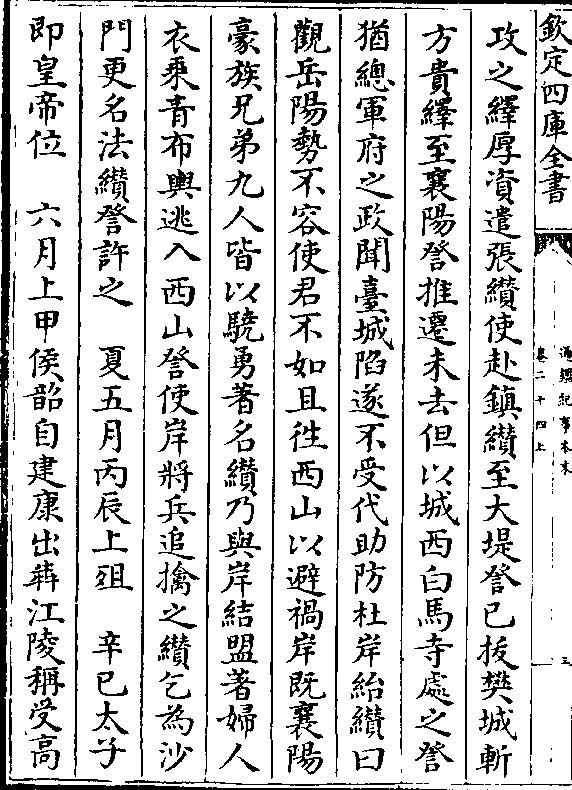 欽定四庫全書
通鑑紀事本末
卷二十四上
三
攻之繹厚資遣張纘使赴鎮纘至大堤詧已拔樊城斬
方貴繹至襄陽詧推遷未去但以城西白馬寺處之詧
猶總軍府之政聞臺城陷遂不受代助防杜岸紿纘曰
觀岳陽勢不容使君不如且往西山以避禍岸既襄陽
豪族兄弟九人皆以驍勇著名纘乃與岸結盟著婦人
衣乘青布輿逃入西山詧使岸將兵追擒之纘乞為沙
門更名法纘詧許之 夏五月丙辰上殂 辛巳太子
即皇帝位 六月上甲侯韶自建康出犇江陵稱受高